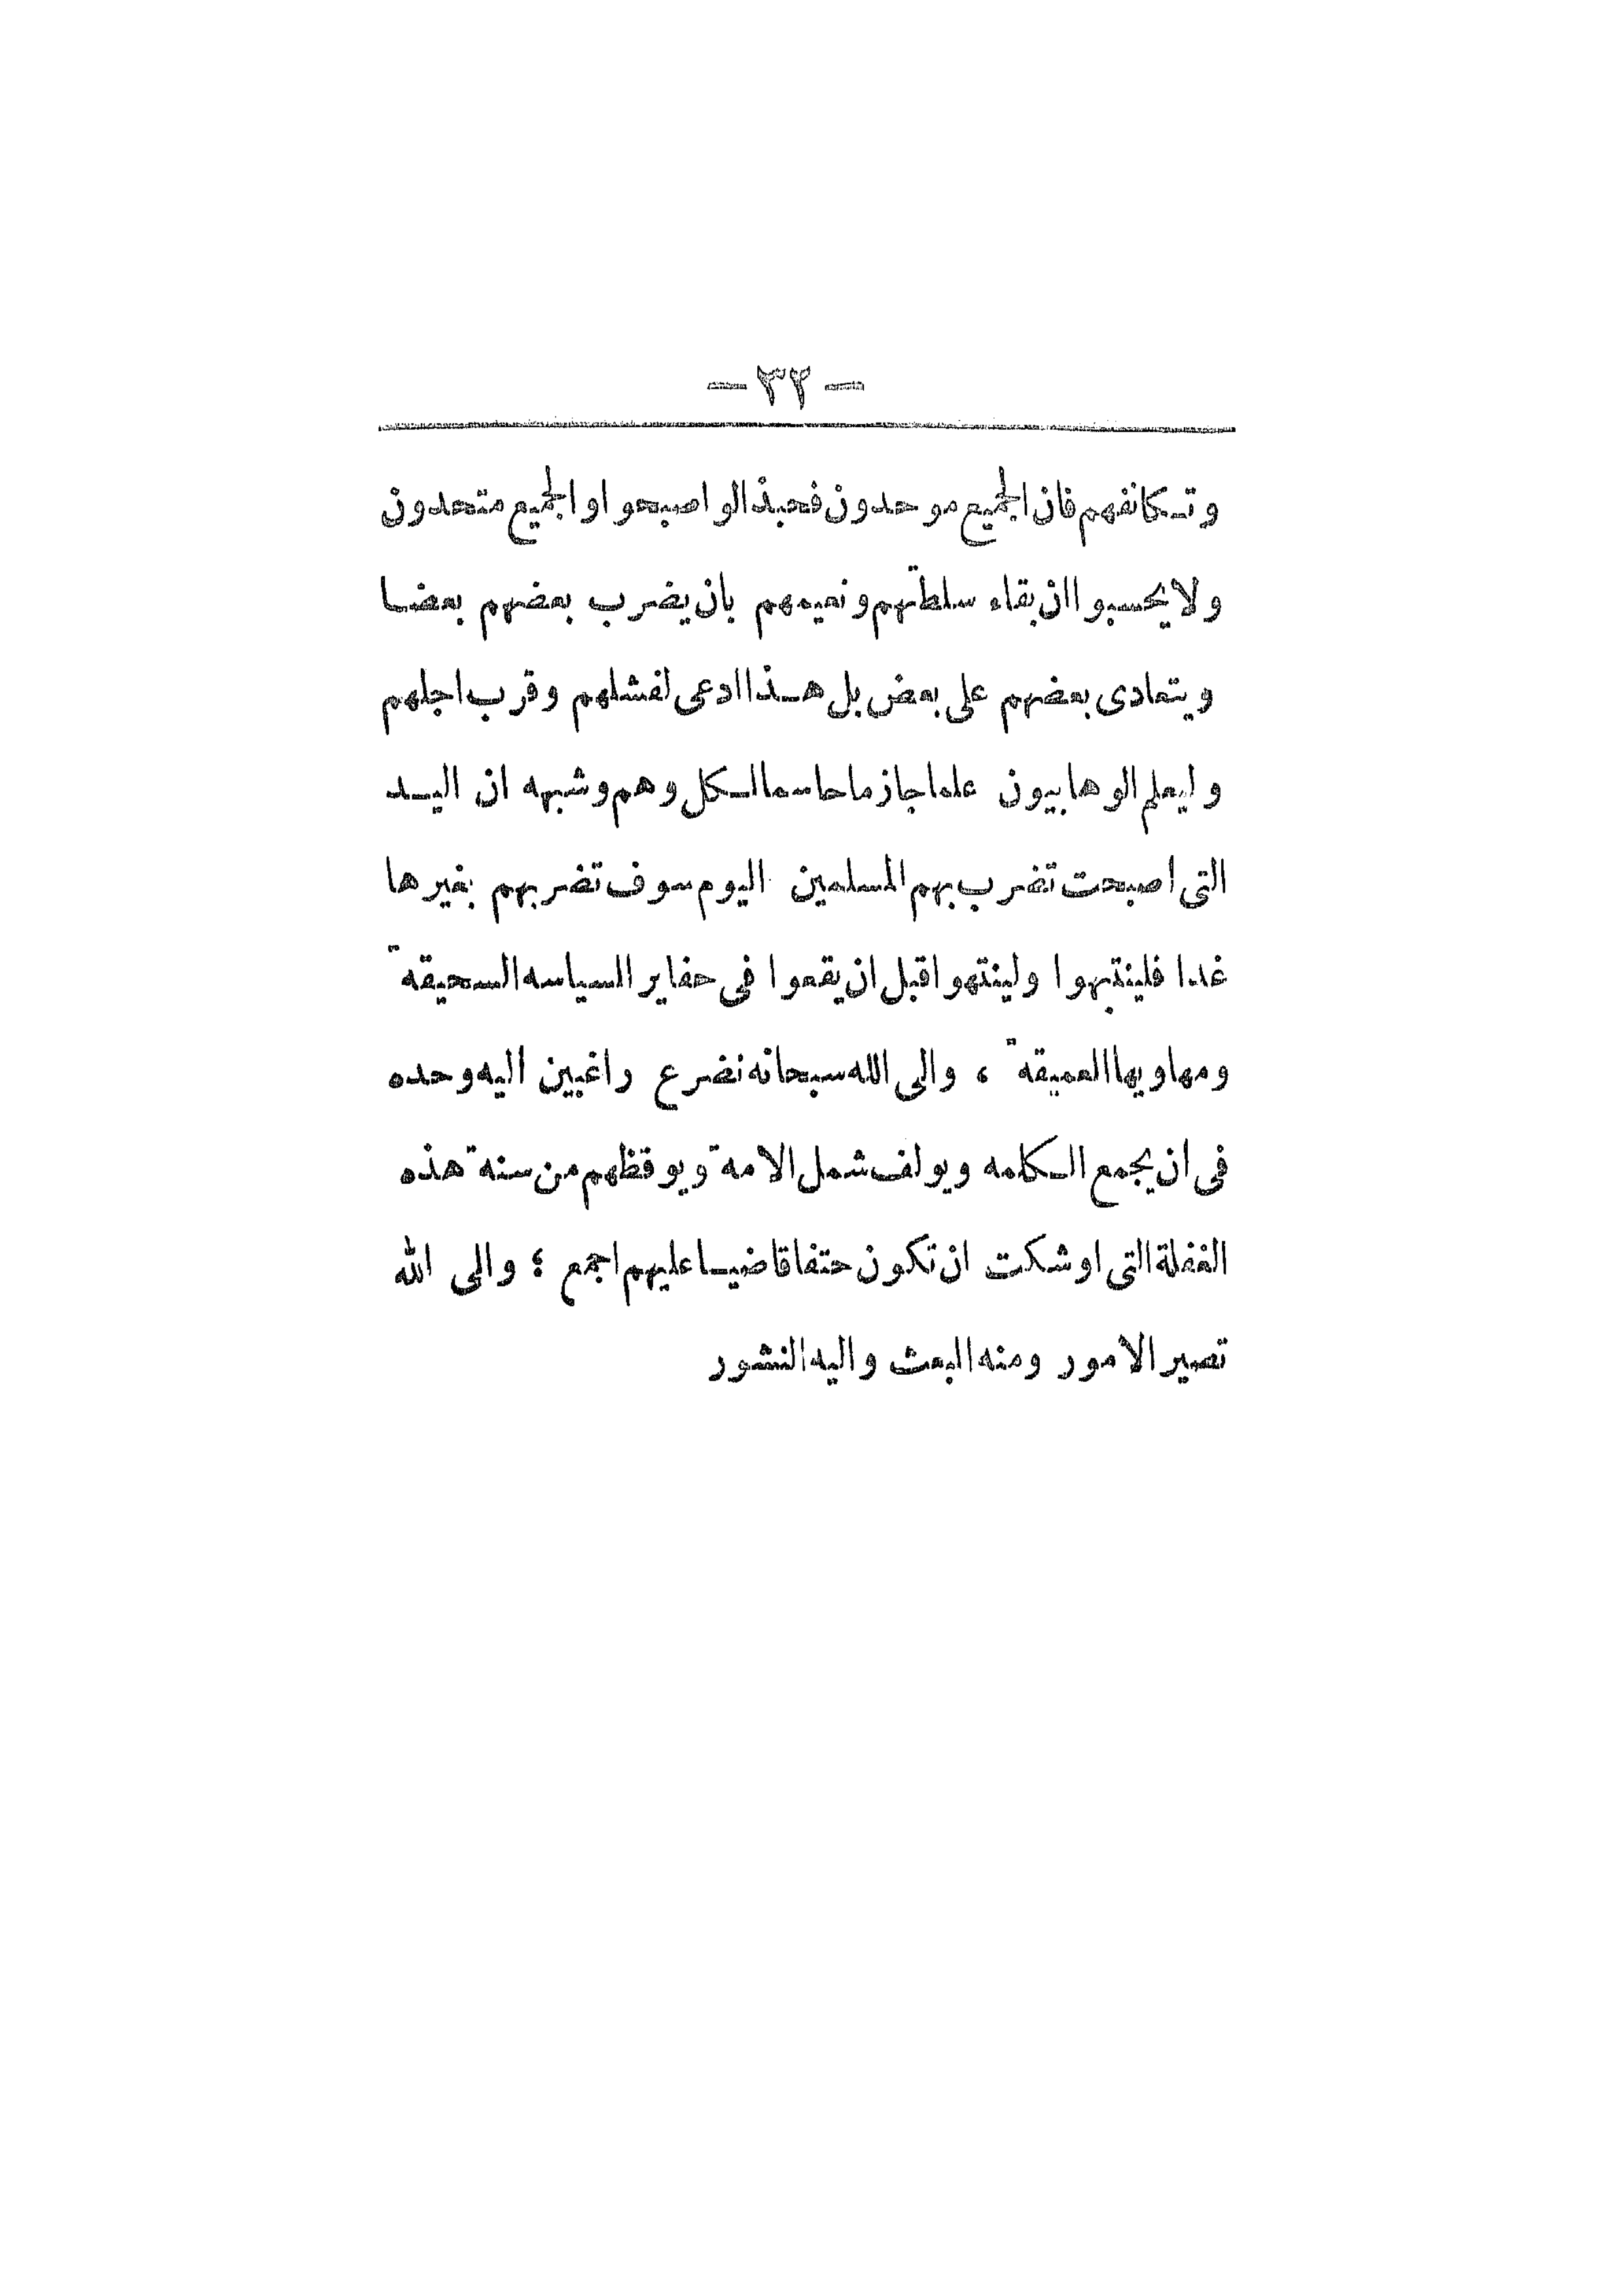 - ٣٢ -
وتكانفهم فان الجميع موحدون فحبذا لو اصبحوا والجميع متحدون
ولا يحسبوا ان بقاء سلطتهم ونعيمهم بان يضرب بعضهم بعضا
ويتعادى بعضهم على بعض بل هذا ادعى لفشلهم وقرب اجلهم
وليعلم الوهابيون علما جازما حاسما لكل وهم وشبهه ان اليد
التى اصبحت تضرب بهم المسلمين اليوم سوف تضربهم بغيرها
غدا فلينتبهوا ولينتهوا قبل ان يقعوا فى حفاير السياسه السحيقة
ومهاويها العميقة ، والى الله سبحانه نضرع راغبين اليه وحده
فى ان يجمع الكلمه ويولف شمل الامة ويوقظهم من سنة هذه
الغفلة التى اوشكت ان تكون حتفا قاضيا عليهم اجمع ؛ والى الله
تصير الامور ومنه البعث واليه النشور